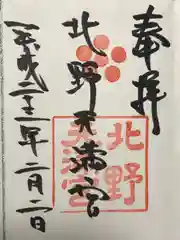 奉拝
北野天満宮
北野
天満宮
平成二十一年二月一日